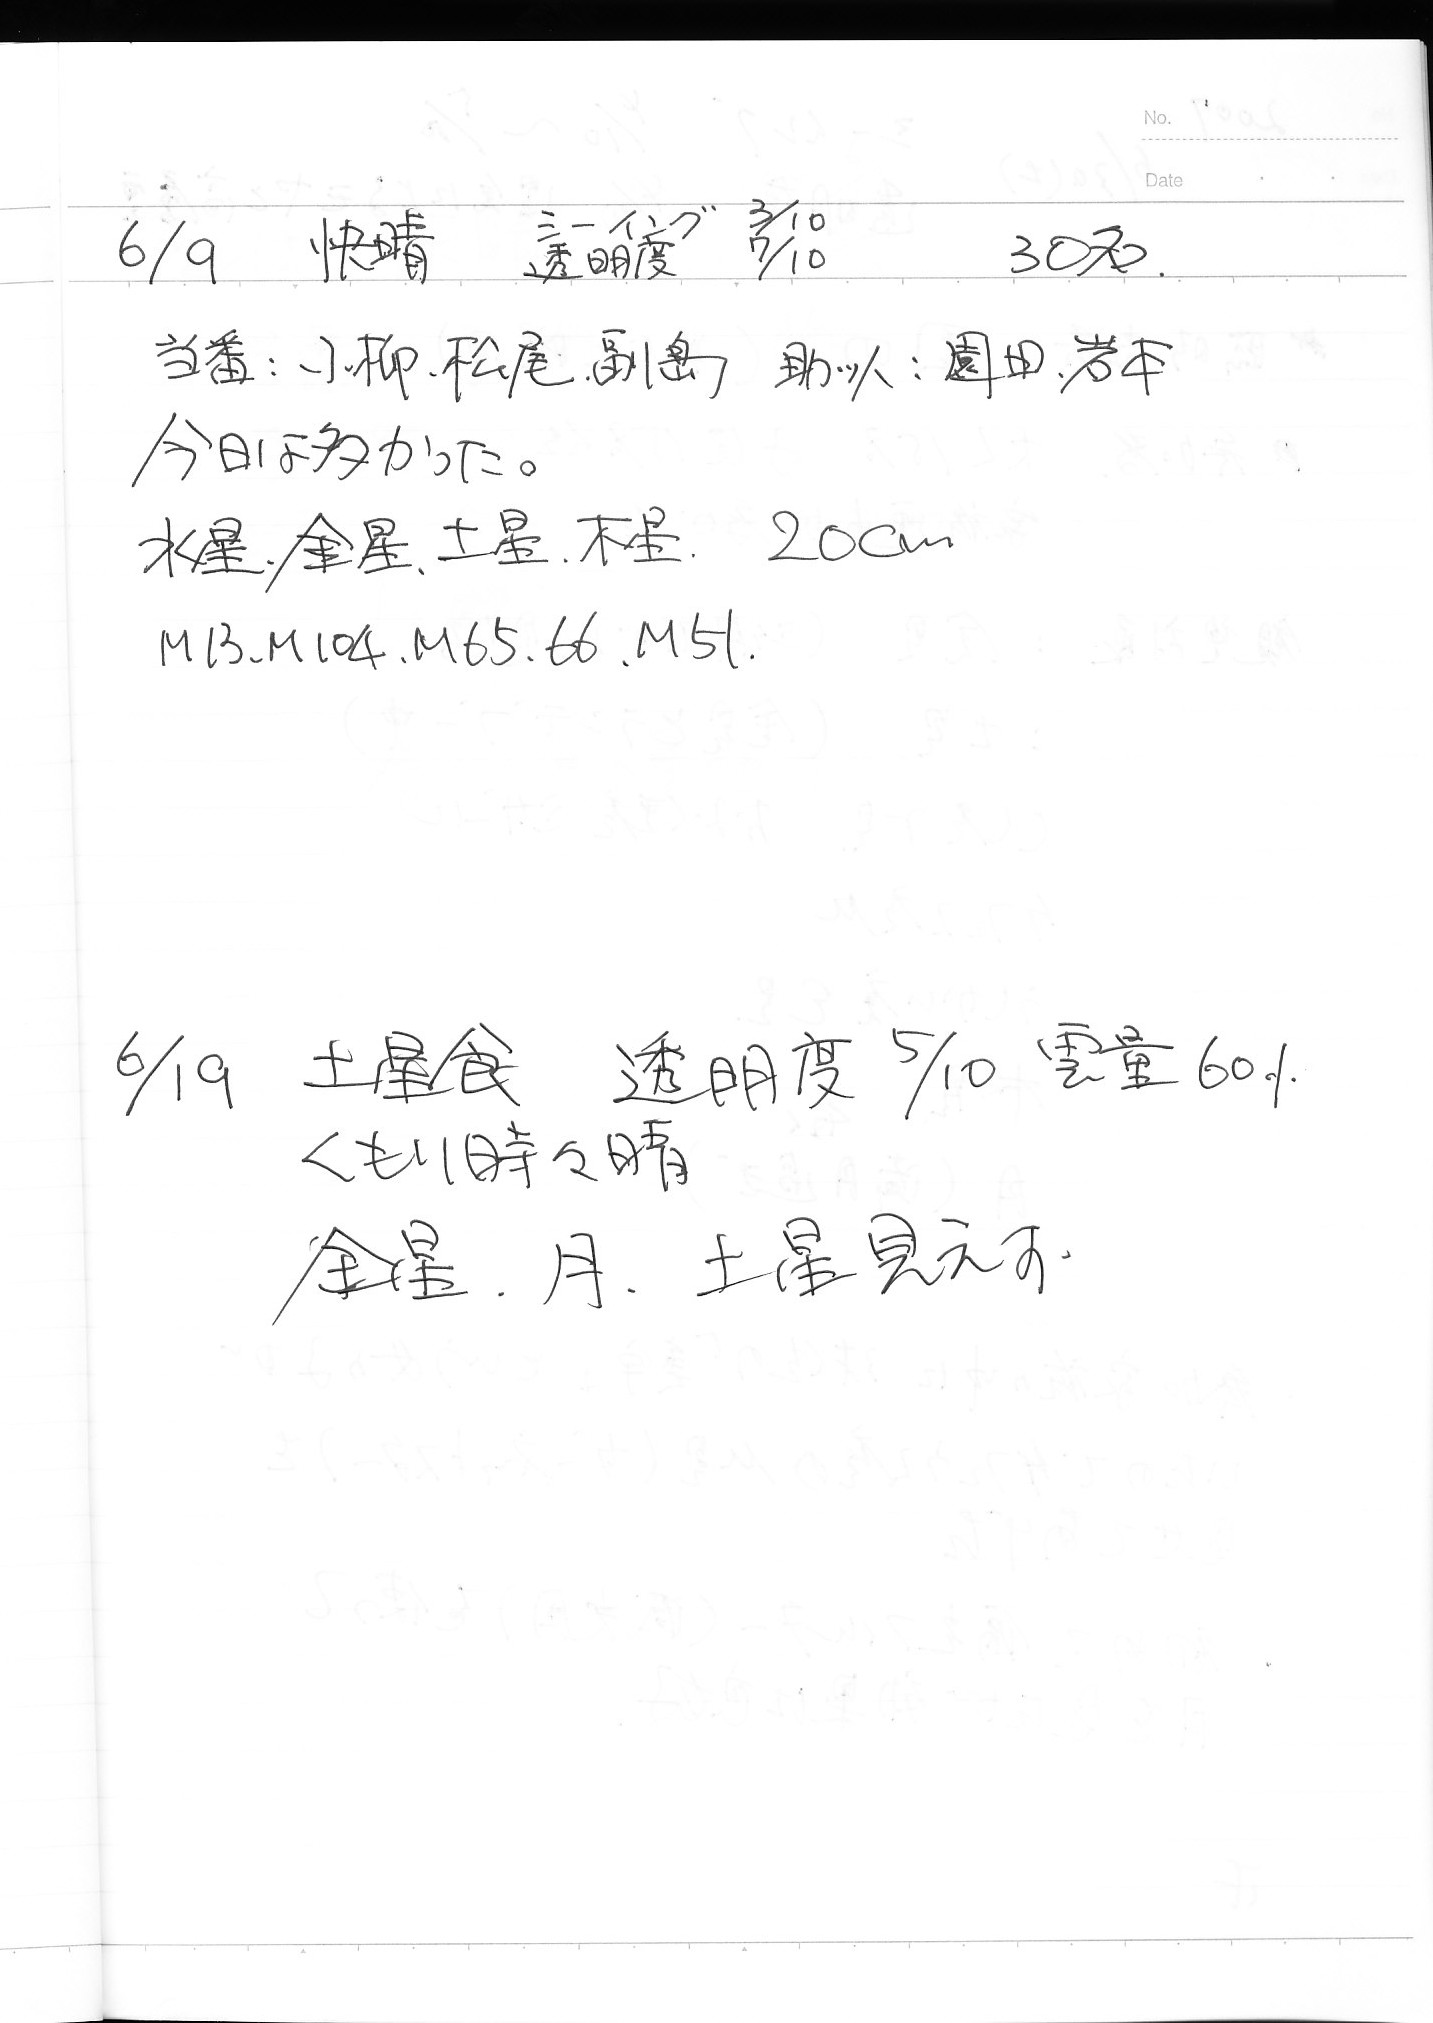 No.
Date
6/9 快晴 シーイング 3/10 30名.
透明度 7/10
当番:小柳.松尾.副島 助っ人:園田.岩本
今日は多かった。
水星.金星、土星.木星. 20cm
M13.M104.M65.66.M51.
6/19 土星食 透明度 5/10 雲量60%
くもり時々晴
金星.月.土星見えず.